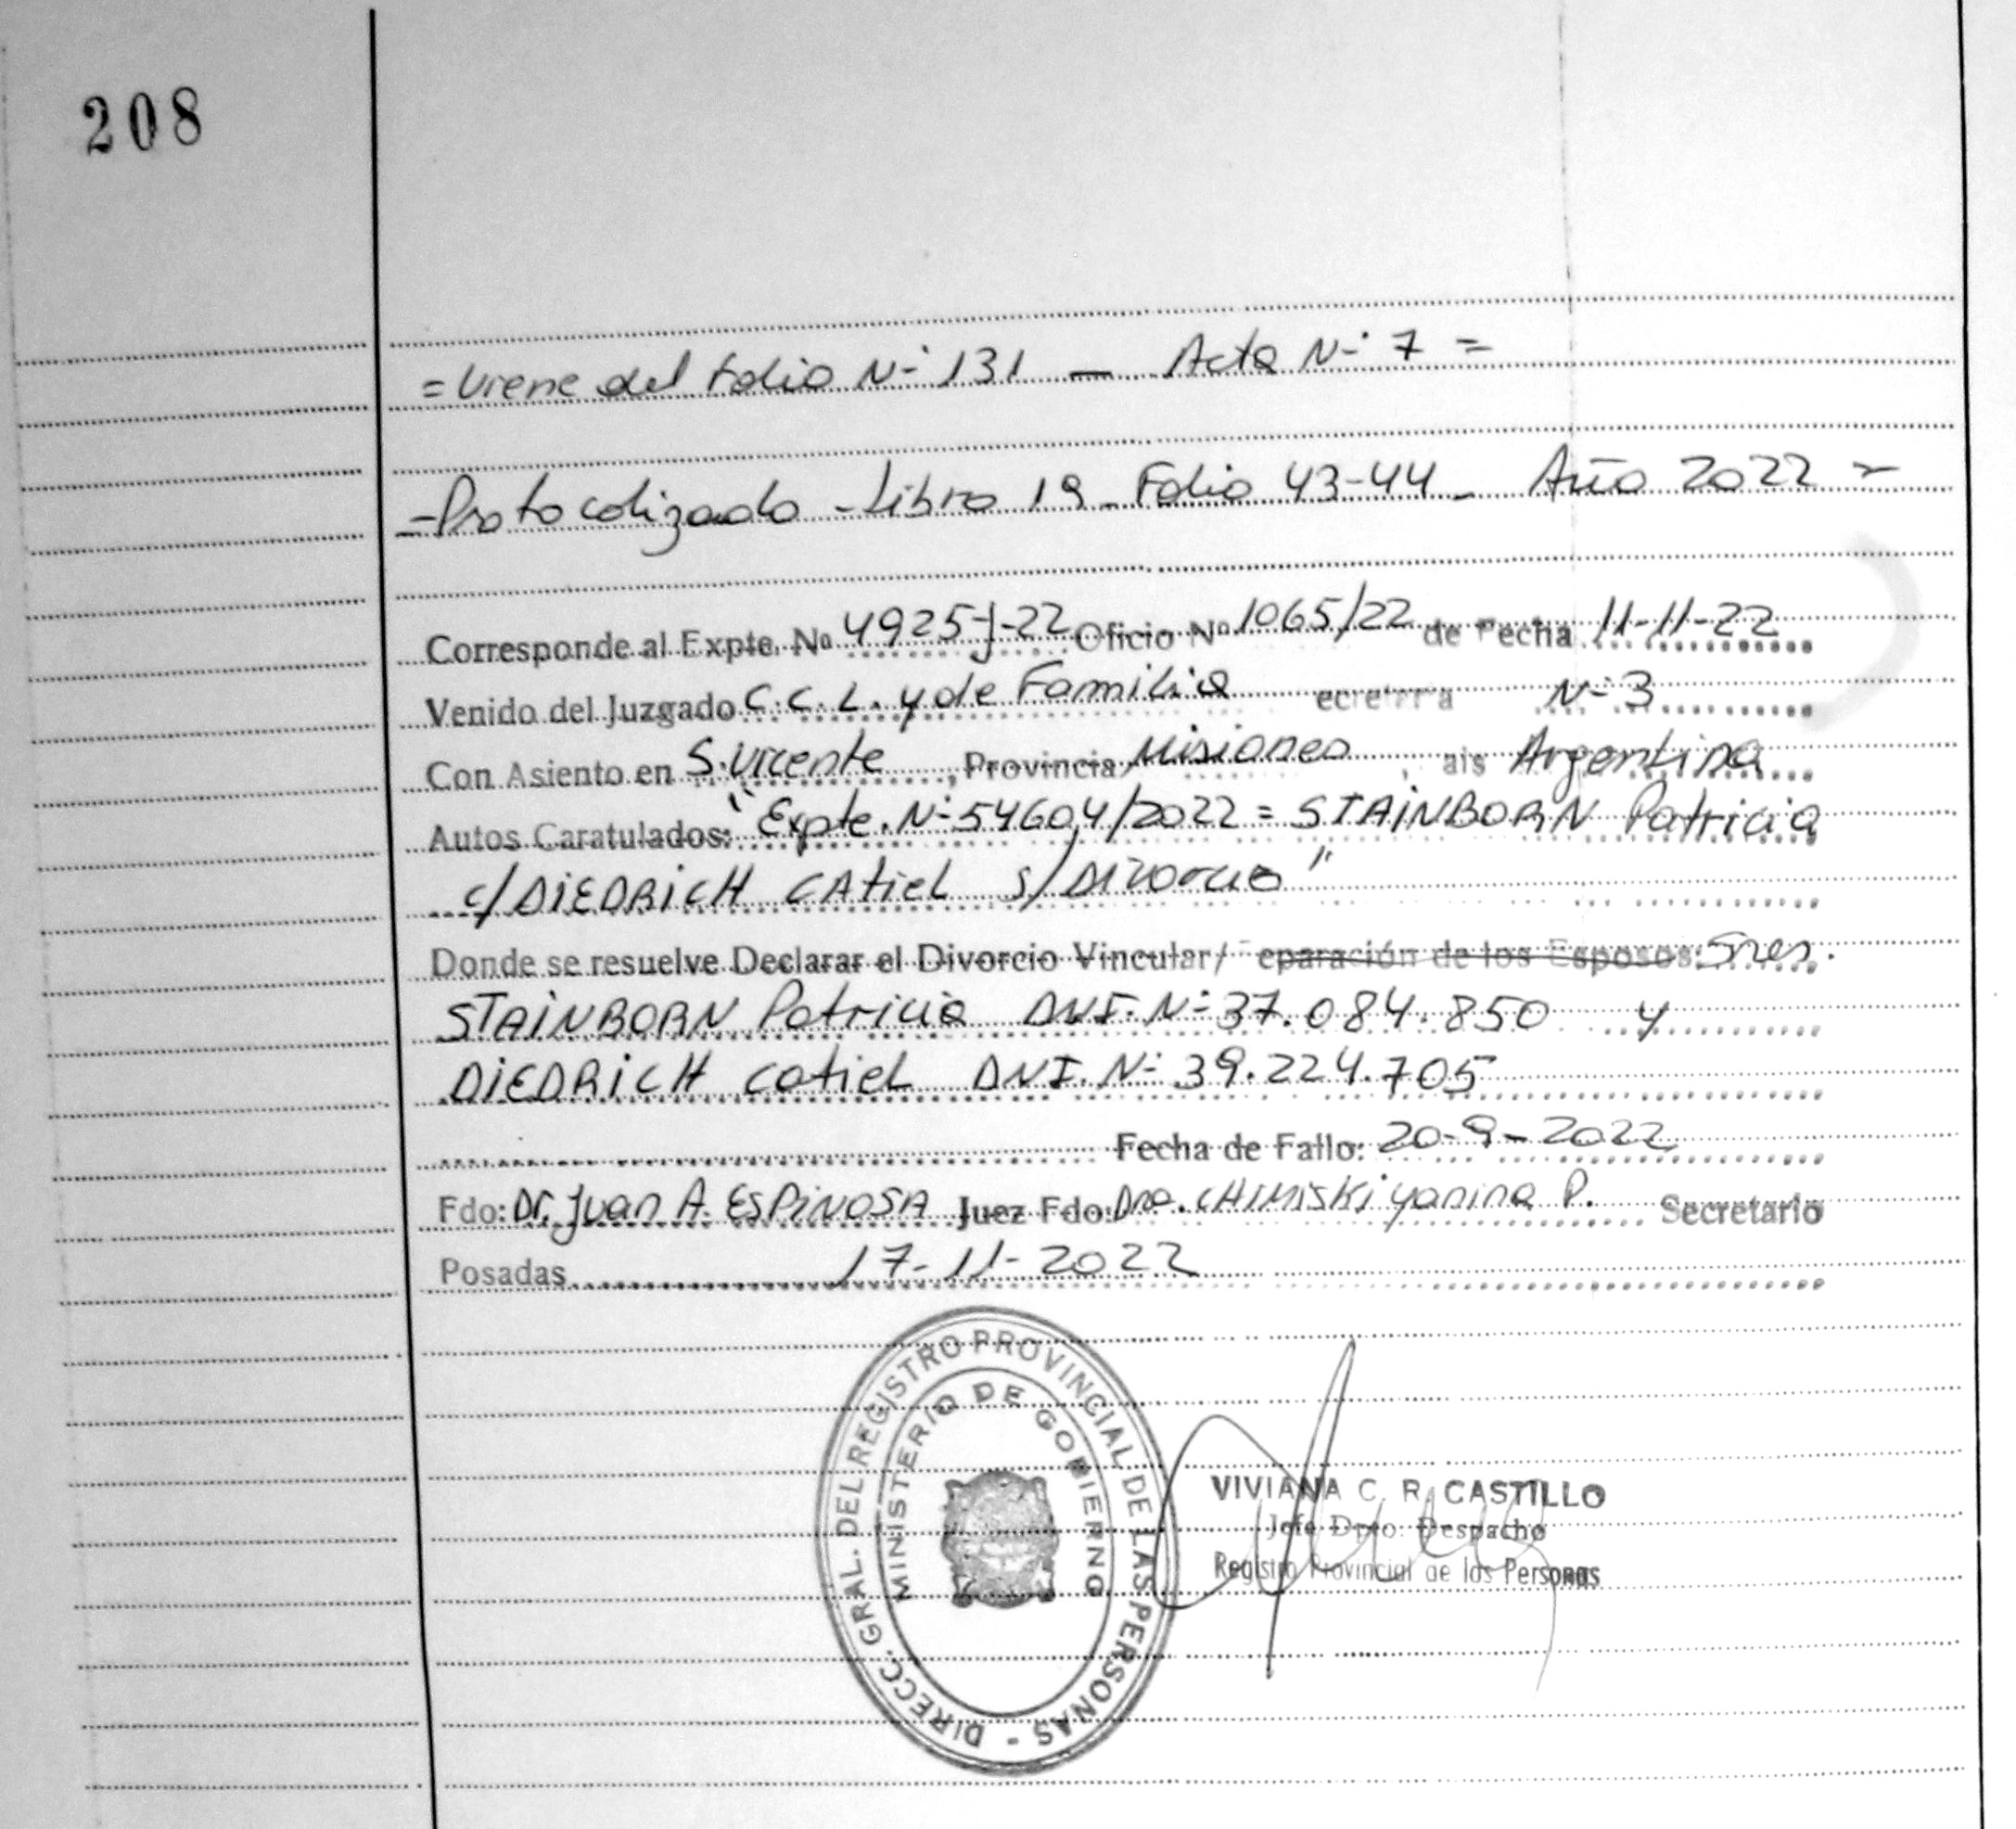 208
= Viene del Folio N-° 131 — Acta N-° 7 =
- Protocolizado - Libro 19 - Folio 43-44 - Año 2022 =
Corresponde al Expte. Nº 4925-J-22 Oficio Nº 1065/22 de Fecha 11-11-22
Venido del Juzgado C.C.L. y de Familia ecretaría N-° 3
Con Asiento en S. Vicente, Provincia Misiones, ais Argentina
Autos Caratulados: "Expte. N-° 54604/2022 = STAINBORN Patricia
c/ DIEDRICH CAtiel s/ Divorcio"
Donde se resuelve Declarar el Divorcio Vincular/ eparación de los Esposos: Sres.
STAINBORN Patricia DNI. N-° 37.084.850 y
DIEDRICH Catiel DNI. N-° 39.224.705
Fecha de Fallo: 20-9-2022
Fdo: Dr. Juan A. ESPINOSA Juez Fdo: Dra. CHIMISKI Yanina P. Secretario
Posadas 17-11-2022
DIRECC. GRAL. DEL REGISTRO PROVINCIAL DE LAS PERSONAS -
MINISTERIO DE GOBIERNO
VIVIANA C. R. CASTILLO
Jefe Dpto. Despacho
Registro Provincial de las Personas